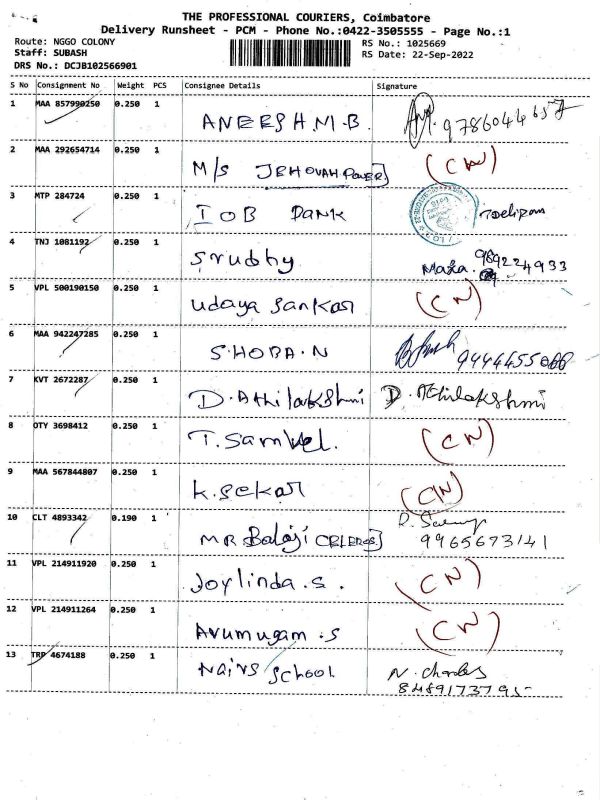 THE PROFESSIONAL COURIERS, Coimbatore
Delivery Runsheet - PCM - Phone No.:0422-3505555 - Page No.:1
Route: NGGO COLONY RS No.: 1025669
Staff: SUBASH RS Date: 22-Sep-2022
DRS No.: DCJB102566901
S No Consignment No Weight PCS Consignee Details Signature
1 MAA 857990250 0.250 1 ANEESH.M.B. 9786044657
2 MAA 292654714 0.250 1 M/s JEHOVAH POWER] (CN)
3 MTP 284724 0.250 1 IOB BANK
4 TNJ 1081192 0.250 1 Srubhy 989224933
5 VPL 500190150 0.250 1 Udaya Sankar (CN)
6 MAA 942247285 0.250 1 S.HOBA.N 9444455066
7 KVT 2672287 0.250 1 D.Athilakshmi D. Athilakshmi
8 OTY 3698412 0.250 1 T.Samuel. (CN)
9 MAA 567844807 0.250 1 K.Sekar (CN)
10 CLT 4893342 0.190 1 MR Balaji 9965673141
11 VPL 214911920 0.250 1 Joylinda.S. (CN)
12 VPL 214911264 0.250 1 Arumugam.S (CN)
13 TRP 4674188 0.250 1 Nairs School N. Charles
8489173795